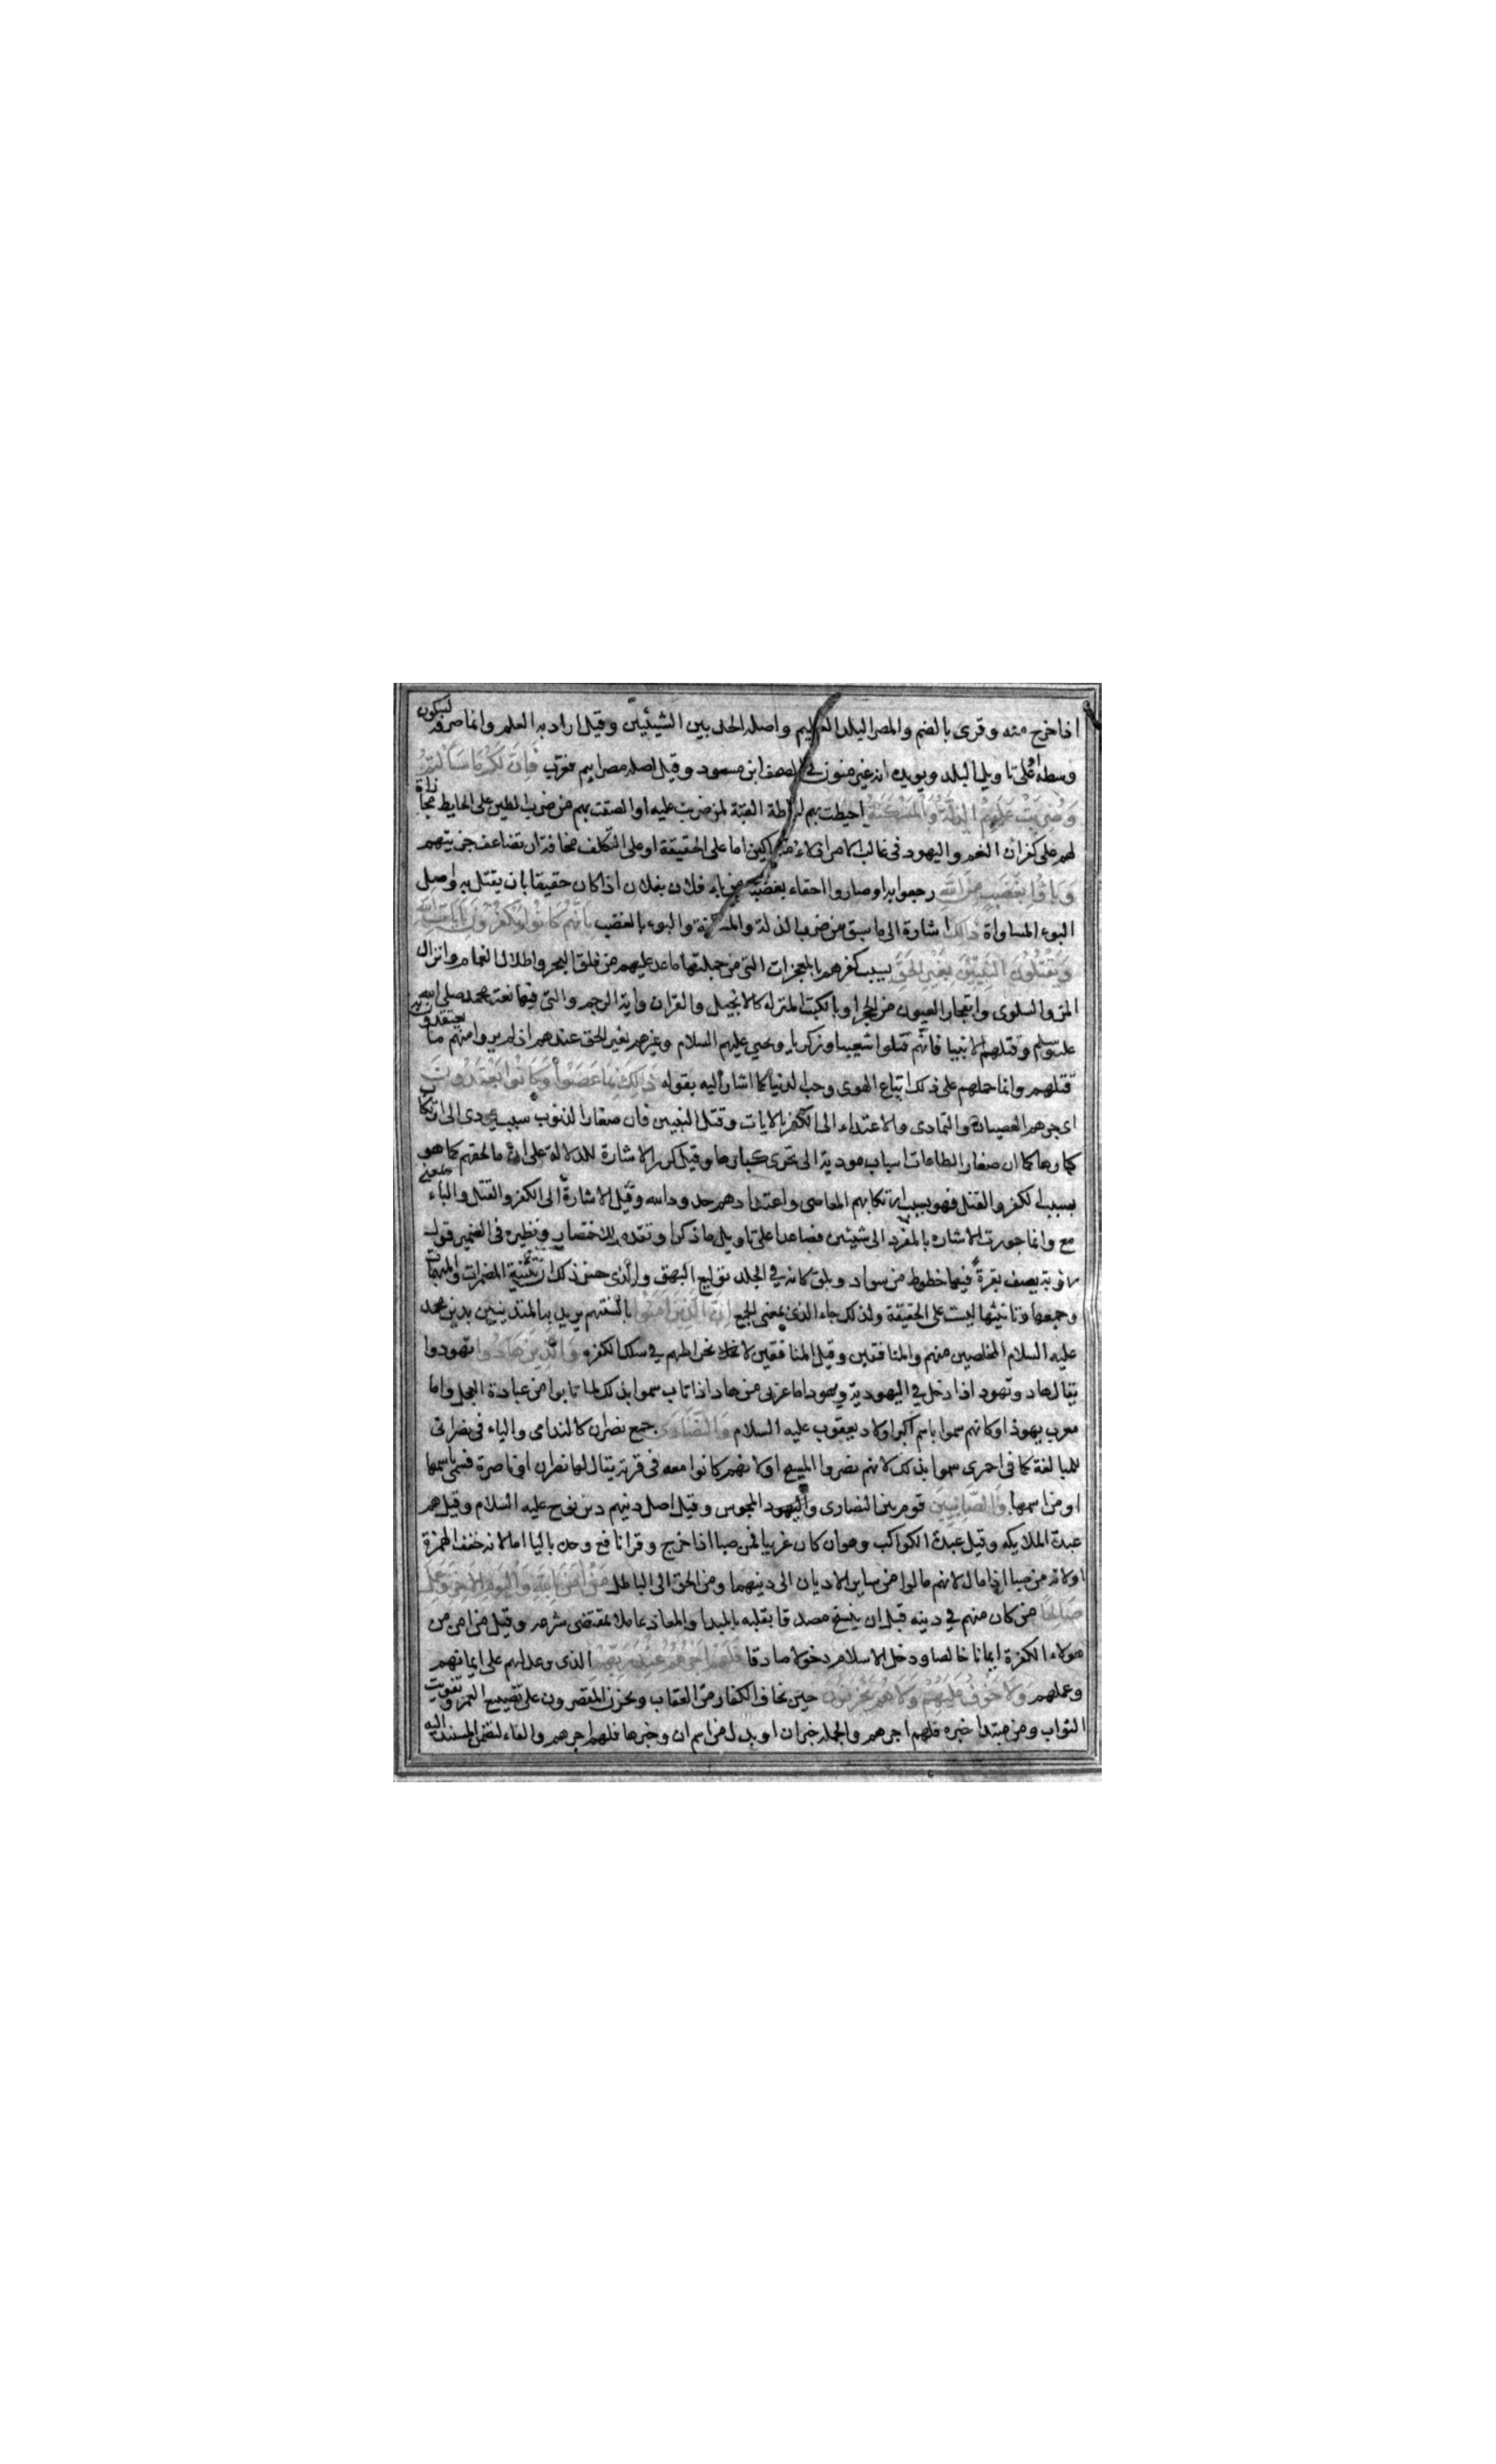 اذا خرج منه وقرى بالضم والمصر البلد العظيم واصله الحد بين الشيئين وقيل اراد به العلم وانما صرفه لسكون
وسطه او على تاويل البلد ويويده انه غير منون في مصحف ابن مسعود وقيل اصله مصراييم فعرب فَاِنَّ لَكُمْ مَا سَاَلْتُمْ
وَضُرِبَتْ عَلَيْهِمُ الذِّلَّةُ وَالْمَسْكَنَةُ احيطت بهم احاطة القبة لمن ضربت عليه او الصقت بهم من ضرب الطين على الحايط مجازاة
لهم على كفران النعم واليهود في غالب الامر اذلاء مساكين اما على الحقيقة او على التكلف مخافة ان تضاعف جزيتهم
وَبَاؤُا بِغَضَبٍ مِنَ اللهِ رجعوا به او صاروا احقاء بغضبه من باء فلان بفلان اذا كان حقيقا بان يقتل به واصل
البوء المساواة ذَلِكَ اشارة الى ما سبق من ضرب الذلة والمسكنة والبوء بالغضب بِاَنَّهُمْ كَانُوا يَكْفُرُونَ بِايَاتِ اللهِ
وَيَقْتُلُونَ النَّبِيِّنَ بِغَيْرِ الْحَقِّ بسبب كفرهم بالمعجزات التي من جملتها ما عد عليهم من فلق البحر واظلال الغمام وانزال
المن والسلوى وانفجار العيون من الحجر او بالكتب المنزله كالانجيل والقران واية الرجم والتي فيها نعت محمد صلى الله
عليه وسلم وقتلهم الانبيا فانهم قتلوا شعيبا وزكريا ويحيى عليهم السلام وغيرهم بغير الحق عندهم اذ لم يروا منهم ما يعتقدون به
قتلهم وانما حملهم على ذلك اتباع الهوى وحب الدنيا كما اشار اليه بقوله ذَلِكَ بِمَا عَصَوْا وَكَانُوا يَعْتَدُونَ
اى جرهم العصيان والتمادى والاعتداء الى الكفر بالايات وقتل النبيين فان صغار الذنوب سبب يودى الى ارتكاب
كبارها كما ان صغار الطاعات اسباب مودية الى تحرى كبارها وقيل كرر الاشارة للدلالة على ان ما لحقهم كما هو
بسبب الكفر والقتل فهو بسبب ارتكابهم المعاصى واعتدادهم حدود الله وقيل الاشارة الى الكفر والقتل والباء بمعنى
مع وانما جورت الاشاره بالمفرد الى شيئين فصاعدا على تاويل ما ذكر او تقدم للاختصار ونظيره في الضمير قول
روبة يصف بقرة فيها خطوط من سواد وبلق كانه في الجلد توليع البهق والذى حسن ذلك ان تثنية المضمرات والمبهمات
وجمعها وتانيثها ليست على الحقيقة ولذلك جاء الذى بمعنى الجمع اِنَّ الَّذِينَ امَنُوا بالسنتهم يريد به المتدينين بدين محمد
عليه السلام المخلصين منهم والمنافقين وقيل المنافقين لانخراطهم في سلك الكفره وَالَّذِينَ هَادُوا تهودوا
يقال هاد وتهود اذا دخل في اليهودية ويهود اما عربى من هاد اذا تاب سموا بذلك لما تابوا من عبادة العجل واما
معرب يهوذا وكانهم سموا باسم اكبر اولاد يعقوب عليه السلام وَالنَّصَارَى جمع نصران كالندامى والياء في نصرانى
للمبالغة كما في احمرى سموا بذلك لانهم نصروا المسيح او لانهم كانوا معه في قرية يقال لها نصران او ناصرة فسموا باسمها
او من اسمها وَالصَّابِيِينَ قوم بين النصارى والمجوس وقيل اصل دينهم دين نوح عليه السلام وقيل هم
عبدة الملايكه وقيل عبدة الكواكب وهو ان كان عربيا فمن صبا اذا خرج وقرا نافع وحده باليا اما لانه خفف الهمزة
او لانه من صبا اذا مال لانهم مالوا من ساير الاديان الى دينهما ومن الحق الى الباطل مَنْ امَنَ بِاللهِ وَالْيَوْمِ الاخِرِ وَعَمِلَ
صَالِحًا من كان منهم في دينه قبل ان ينسخ مصدقا بقلبه بالمبدا والمعاد عاملا بمقتضى شرعه وقيل من امن من
هولاء الكفرة ايمانا خالصا ودخل الاسلام دخولا صادقا فَلَهُمْ اَجْرُهُمْ عِنْدَ رَبِّهِمْ الذى وعد لهم على ايمانهم
وعملهم وَلَا خَوْفٌ عَلَيْهِمْ وَلَا هُمْ يَحْزَنُونَ حين يخاف الكفار من العقاب ويحزن المقصرون على تضييع العمر وتفويت
الثواب ومن مبتدا خبره فلهم اجرهم والجمله خبر ان او بدل من اسم ان وخبرها فلهم اجرهم والفاء لتضمن المسند اليه